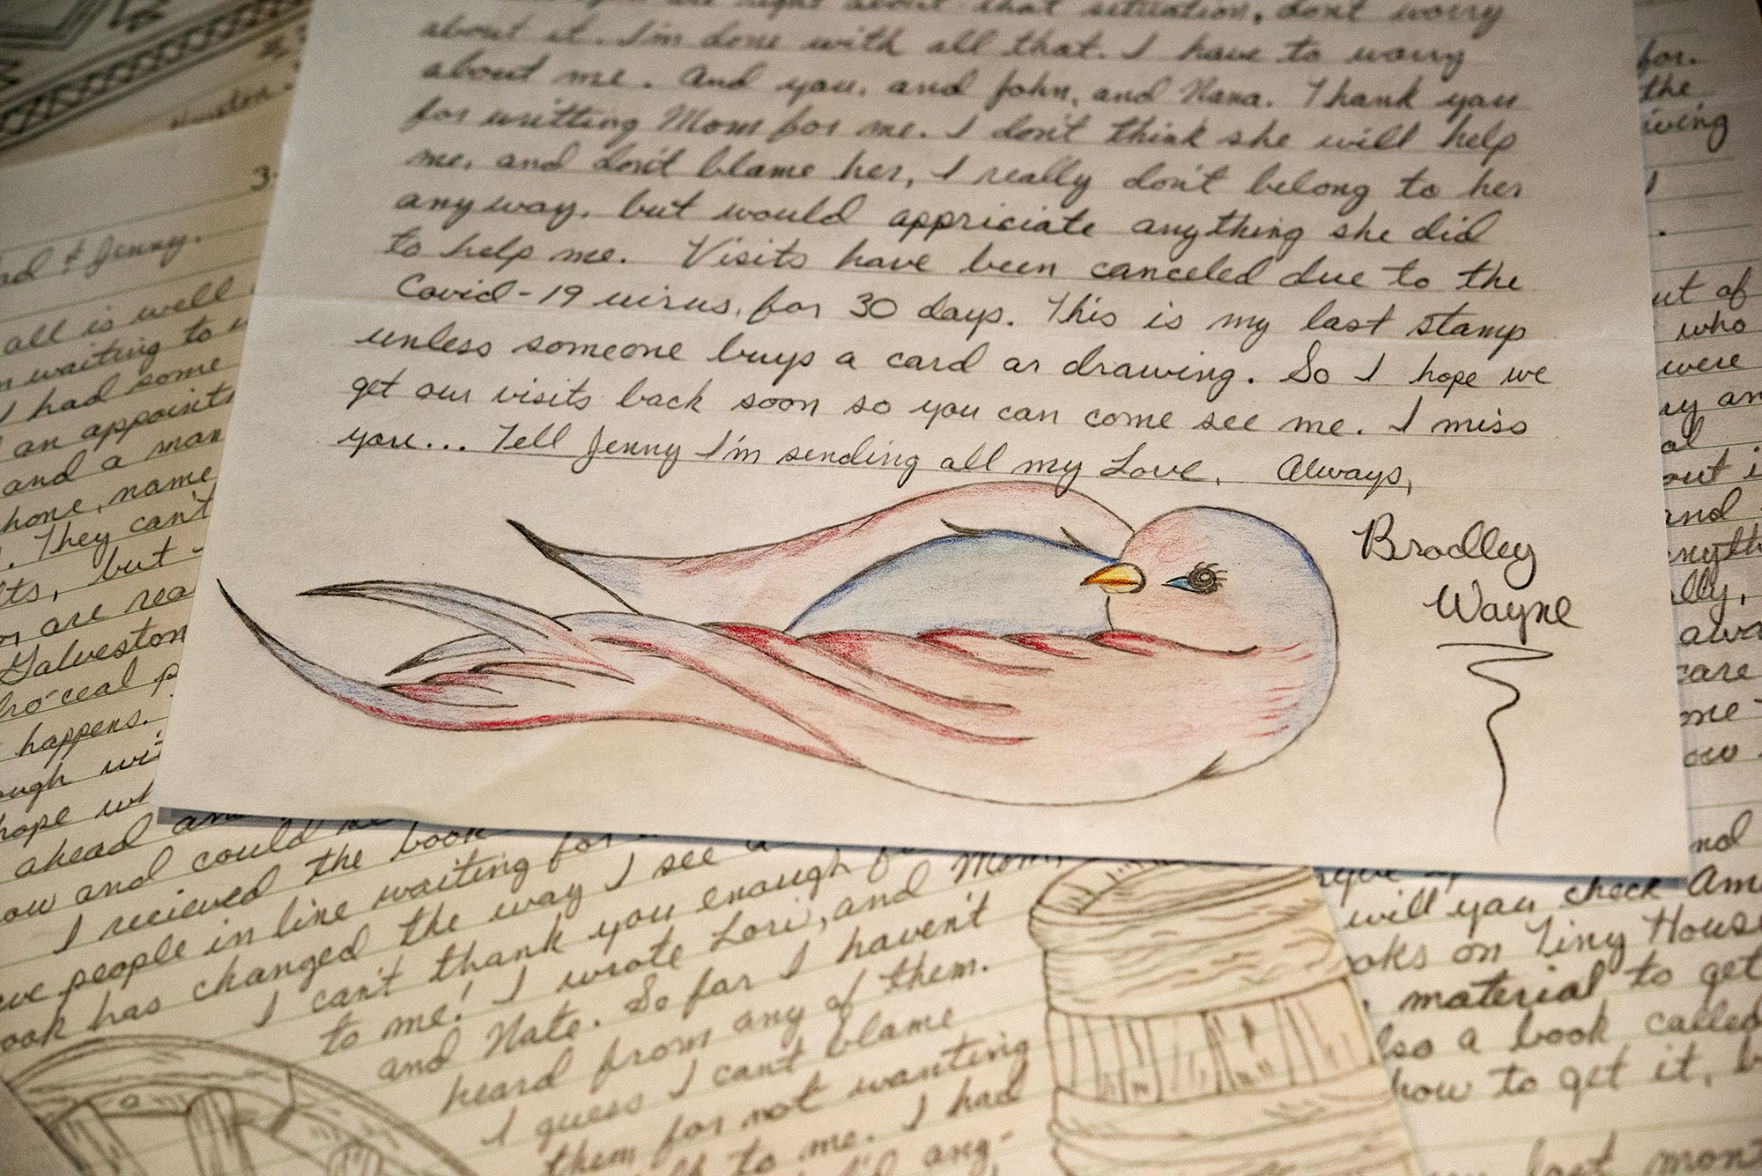 right about that situation, dont worry
about it. I'm done with all that. I have to worry
about me. And you, and John, and Nana. Thank you
for writting Mom for me. I don't think she will help
me, and don't blame her, I really don't belong to her
anyway, but would appriciate anything she did
to help me. Visits have been canceled due to the
Covid-19 virus, for 30 days. This is my last stamp
unless someone buys a card or drawing. So I hope we
get our visits back soon so you can come see me. I miss
you... Tell Jenny I'm sending all my Love, Always,
Bradley
Wayne
Houston.
3.
& Jenny.
all is well
waiting to
I had some
an appoint
and a man
hone, name
They can't
but
or are rea
Galveston
happens.
ough wi
hope wh
ahead an
ow and could
I recieved the book
ve people in line waiting for
ook has changed the way I see a
I can't thank you enough f
to me! I wrote Lori, and Mom,
and Nate. So far I haven't
heard from any of them.
I guess I can't blame
them for not wanting
to me. I had
ang-
for.
the
iving
I
ut of
who
were
ry an
al
out i
and
nyth
lly,
alwa
care
one-
ow.
nd
will you check Am
oks on Tiny Hous
material to get
lso a book called
how to get it, b
last mon